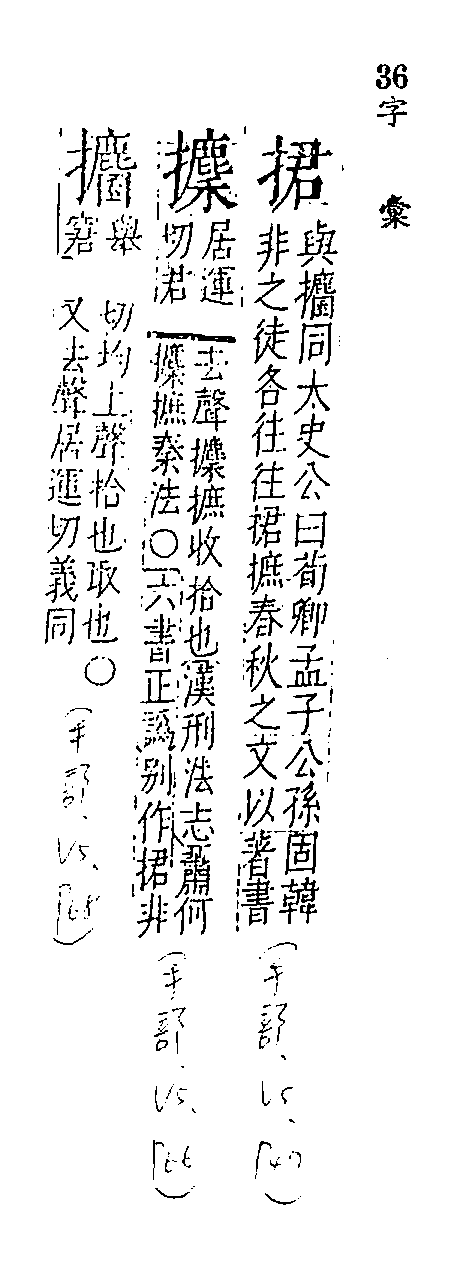 36
字彙
捃
與攟同太史公曰荀卿孟子公孫固韓
非之徒各往往捃摭春秋之文以著書
(手部、V5、P40)
攈
居運
切君
去聲攈摭收拾也漢刑法志蕭何
攈摭秦法○六書正譌別作捃非
(手部、V5、P66)
攟
舉
窘
切均上聲拾也取也○
又去聲居運切義同
(手部、V5、P68)